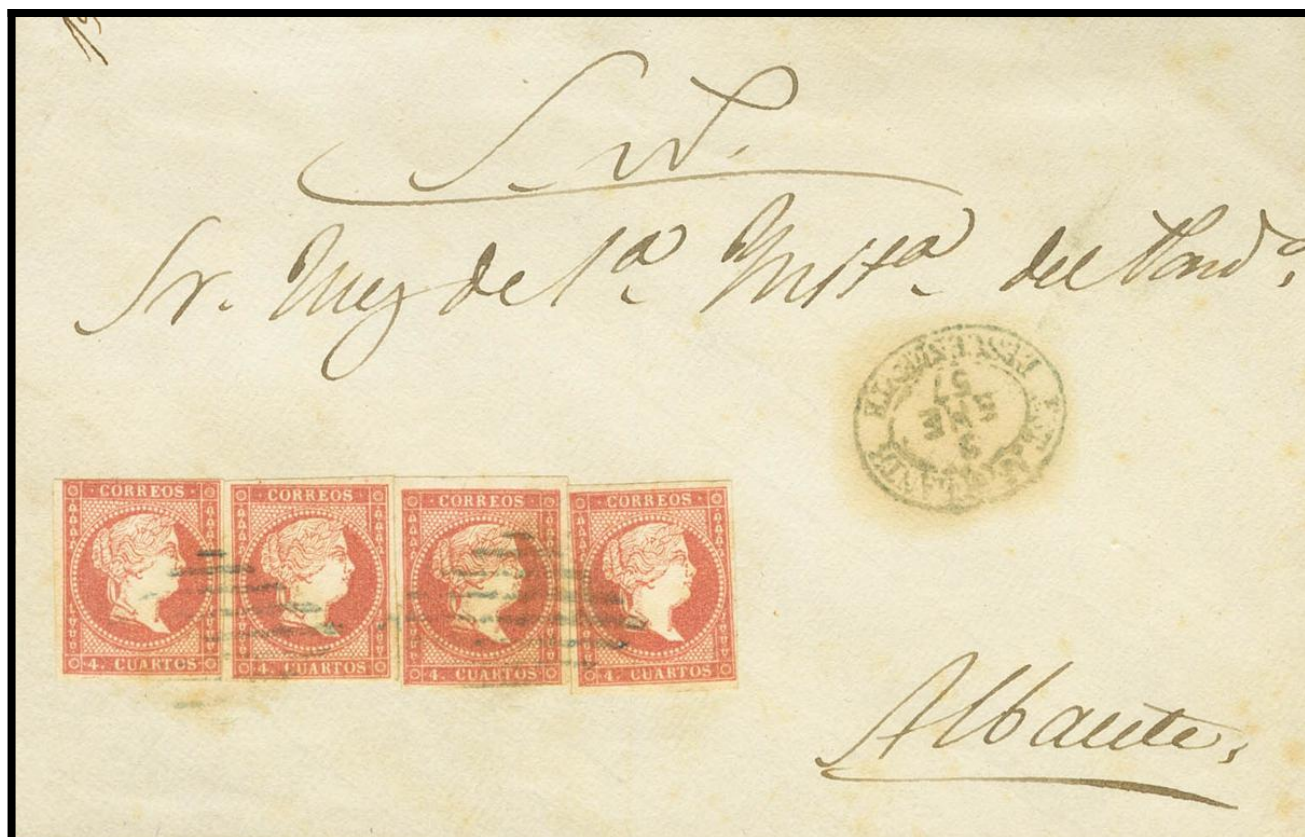 S. N.
Sr. Juez de 1ª Instª del Partº
3
ENE
57
CORREOS
4. CUARTOS
CORREOS
4. CUARTOS
CORREOS
4. CUARTOS
CORREOS
4. CUARTOS
Albacete.